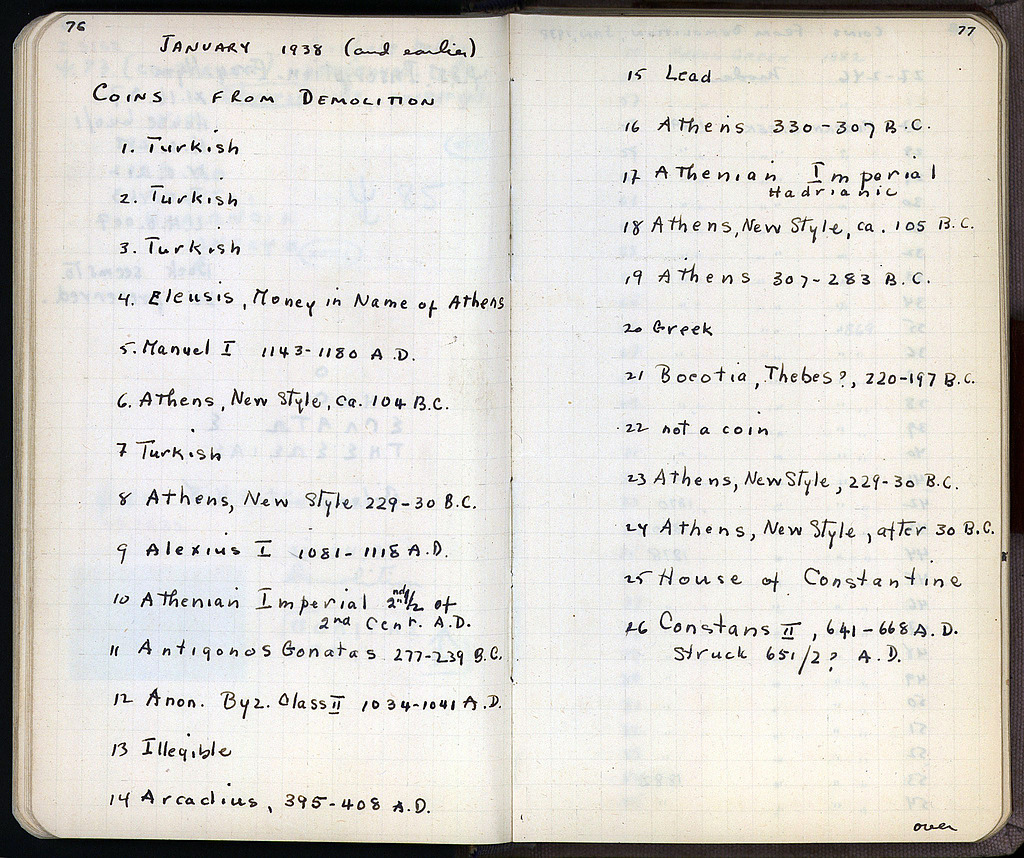 76
JANUARY 1938 (and earlier)
COINS FROM DEMOLITION
1. Turkish
2. Turkish
3. Turkish
4. Eleusis, Money in Name of Athens
5. Manuel I 1143-1180 A.D.
6. Athens, New Style, ca. 104 B.C.
7 Turkish
8 Athens, New Style 229-30 B.C.
9 Alexius I 1081-1118 A.D.
10 Athenian Imperial 2nd 1/2 of
2nd Cent. A.D.
11 Antigonos Gonatas 277-239 B.C.
12 Anon. Byz. Class II 1034-1041 A.D.
13 Illegible
14 Arcadius, 395-408 A.D.
77
15 Lead
16 Athens 330-307 B.C.
17 Athenian Imperial
Hadrianic
18 Athens, New Style, ca. 105 B.C.
19 Athens 307-283 B.C.
20 Greek
21 Boeotia, Thebes?, 220-197 B.C.
22 not a coin
23 Athens, New Style, 229-30 B.C.
24 Athens, New Style, after 30 B.C.
25 House of Constantine
26 Constans II, 641-668 A.D.
Struck 651/2? A.D.
over